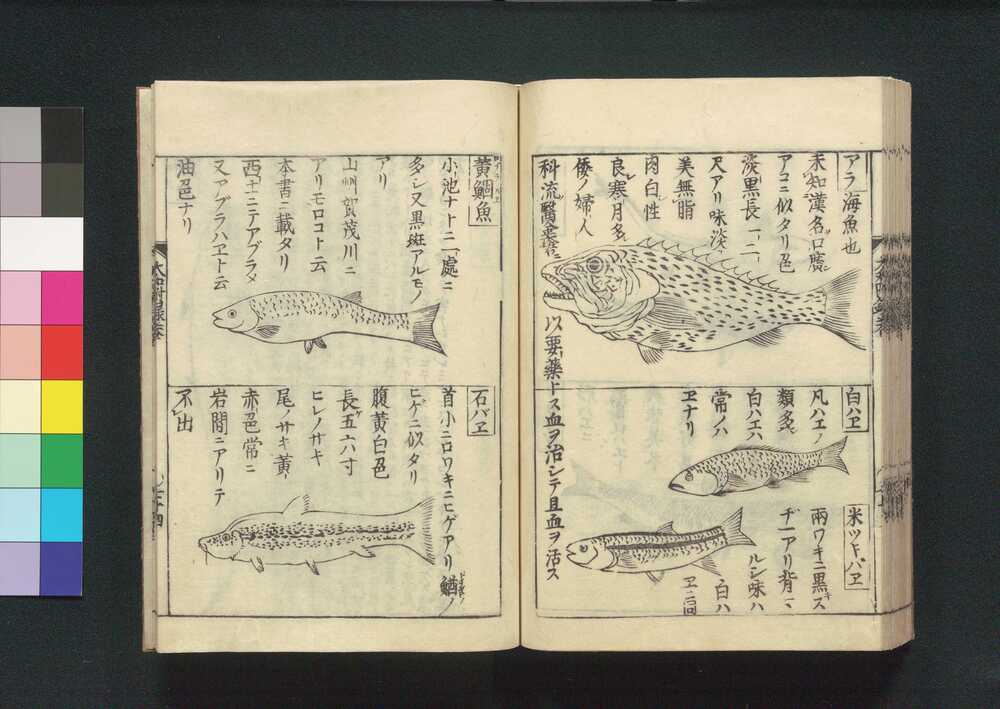 アラ 海魚也
未知漢名口廣
アコニ似タリ色
淡黒長一二
尺アリ味淡
美無脂
肉白性
良寒月多シ
倭ノ婦人
科流醫
以要藥トス血ヲ治シテ且血ヲ活ス
白ハヱ
凡ハエノ
類多シ
白ハエハ
常ノハ
ヱナリ
米ツキバヱ
兩ワキニ黒ス
ヂ一アリ背ニ
ルシ味ハ
白ハ
ヱニ同
黄鯝魚
小池ナトニ處ニ
多シ又黒斑アルモノ
アリ
山州賀茂川ニ
アリモロコト云
本書ニ載タリ
西土ニテアブラメ
又アブラハヱト云
油邑ナリ
石バヱ
首小ニロワキニヒゲアリ鰌ノ
ヒゲニ似タリ
腹黄白色
長五六寸
ヒレノサキ
尾ノサキ黄
赤色常ニ
岩間ニアリテ
不出